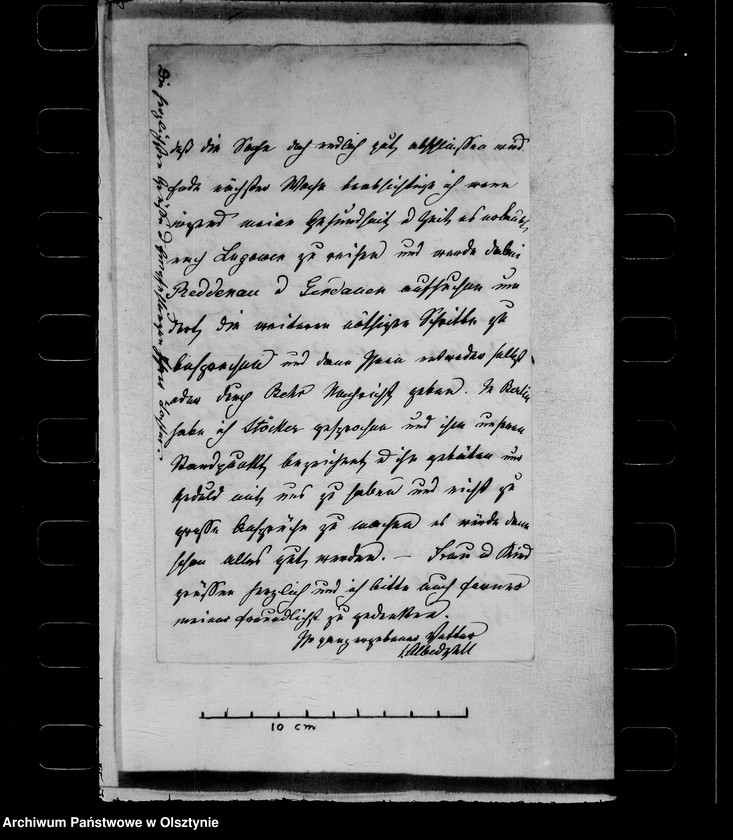 daß die Sache doch endlich gut abschliessen wird.
Ende nächster Woche beabsichtige ich wenn
irgend meine Gesundheit & Zeit es erlaubt,
nach Lugowen zu reisen und werde dabei
Reddenau & Gerdauen aufsuchen um
dort die weiteren nöthigen Schritte zu
besprechen und dann Ihnen entweder selbst
oder durch Nachricht geben. In Berlin
habe ich Stöcker gesprochen und ihm unseren
Standpunkt bezeichnet & ihn gebeten um
Geduld mit uns zu haben und nicht zu
grosse Ansprüche zu machen es würde dann
schon alles gut werden. — Frau & Kind
grüssen herzlich und ich bitte auch ferner
meiner freundlichst zu gedenken.
Ihr ganz ergebener Vetter
v. Albedyll
Die herzlichsten Grüße
10 cm
Archiwum Państwowe w Olsztynie